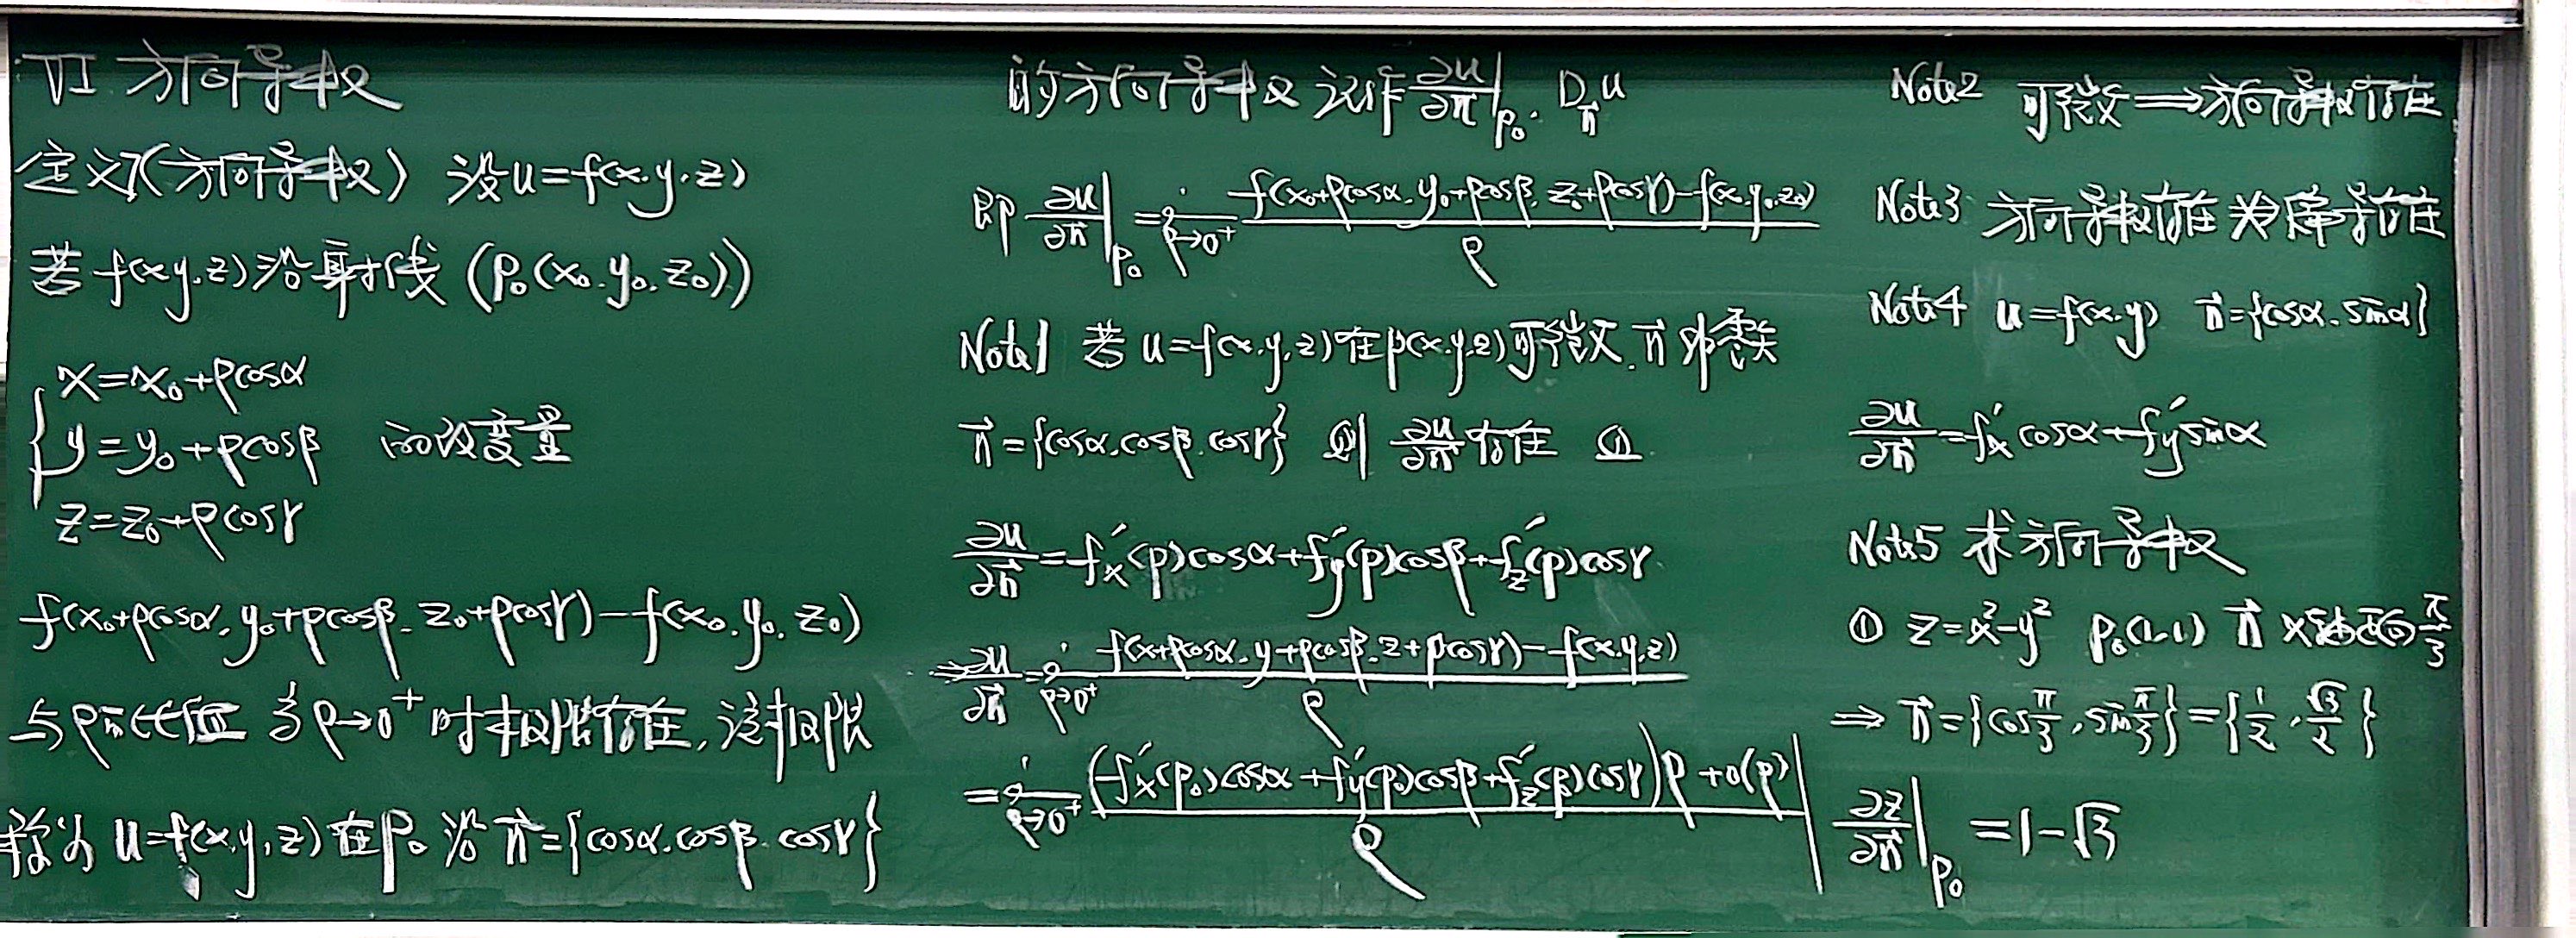 VI 方向导数
定义(方向导数) 设u=f(x.y.z)
若f(x.y.z)沿射线 (P₀(x₀.y₀.z₀))
{ x=x₀+ρcosα
y=y₀+ρcosβ 的改变量
z=z₀+ρcosγ
f(x₀+ρcosα, y₀+ρcosβ, z₀+ρcosγ)-f(x₀.y₀.z₀)
与ρ的比值 当ρ→0⁺时极限存在,该极限
称为 u=f(x,y,z)在P₀沿 n⃗={cosα.cosβ.cosγ}
的方向导数 记作 ∂u/∂n⃗|P₀. D_n⃗ u
即 ∂u/∂n⃗|P₀ = lim ρ→0⁺ (f(x₀+ρcosα, y₀+ρcosβ, z₀+ρcosγ)-f(x₀.y₀.z₀))/ρ
Note1 若 u=f(x.y.z)在p(x.y.z)可微, n⃗
n⃗={cosα.cosβ.cosγ} 则 ∂u/∂n⃗ 存在 且
∂u/∂n⃗=f'x(p)cosα+f'y(p)cosβ+f'z(p)cosγ
⇒∂u/∂n⃗= lim ρ→0⁺ (f(x+ρcosα, y+ρcosβ, z+ρcosγ)-f(x.y.z))/ρ
= lim ρ→0⁺ ((f'x(p₀)cosα+f'y(p₀)cosβ+f'z(p₀)cosγ)ρ+o(ρ))/ρ
Note2 可微⟹方向导数存在
Note3 方向导数存在 ⇏ 偏导存在
Note4 u=f(x.y) n⃗={cosα.sinα}
∂u/∂n⃗=f'x cosα+f'y sinα
Note5 求方向导数
① z=x²-y² P₀(1,1) n⃗ x轴正向 π/3
⇒ n⃗={cos π/3, sin π/3}={1/2, √3/2}
∂z/∂n⃗|P₀ =1-√3